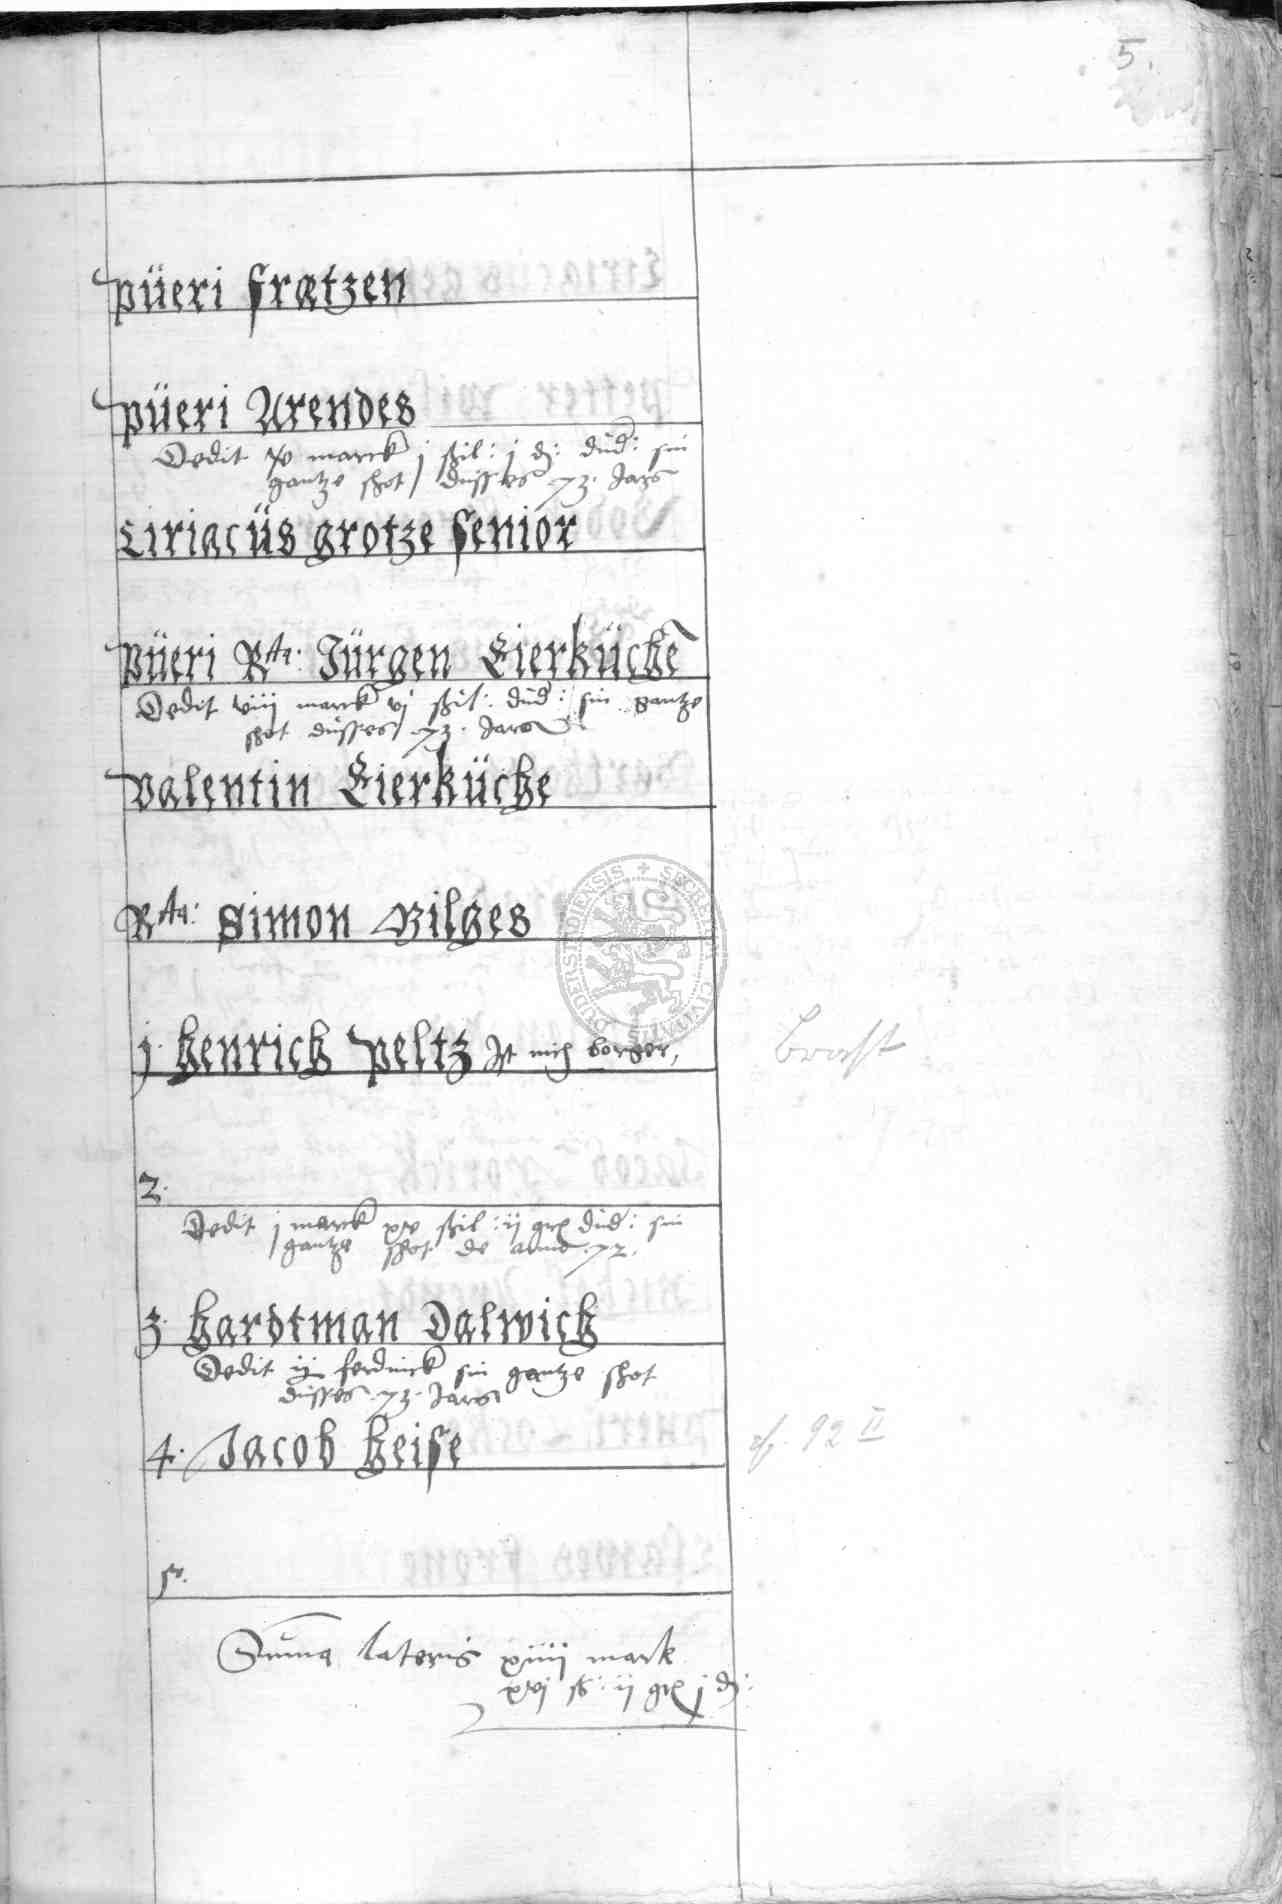 5.
püeri fratzen
püeri Arendes
Dedit marck j shil: j d: düd: sin
gantze shot düsses 73. Jars
Ciriacüs grotze senior
püeri Rta: Jürgen Eierküche
Dedit viiij marck vj shil: düd: sin gantze
shot düsses 73. Jars
valentin Eierküche
Rta: Simon Hilges
SECRETUM CIVITATIS DUDERSTADIENSIS
j. henrich peltz Jst nich borger,
2.
Dedit j marck xv shil: ij gr düd: sin
gantze shot de anno 72.
3. hardtman Dalwich
Dedit ferdinck sin gantze shot
düsses 73. Jars
4. Jacob heise
cf. 92 II
5.
Suma lateris xiiij mark
xvj ß: ij gr j d: